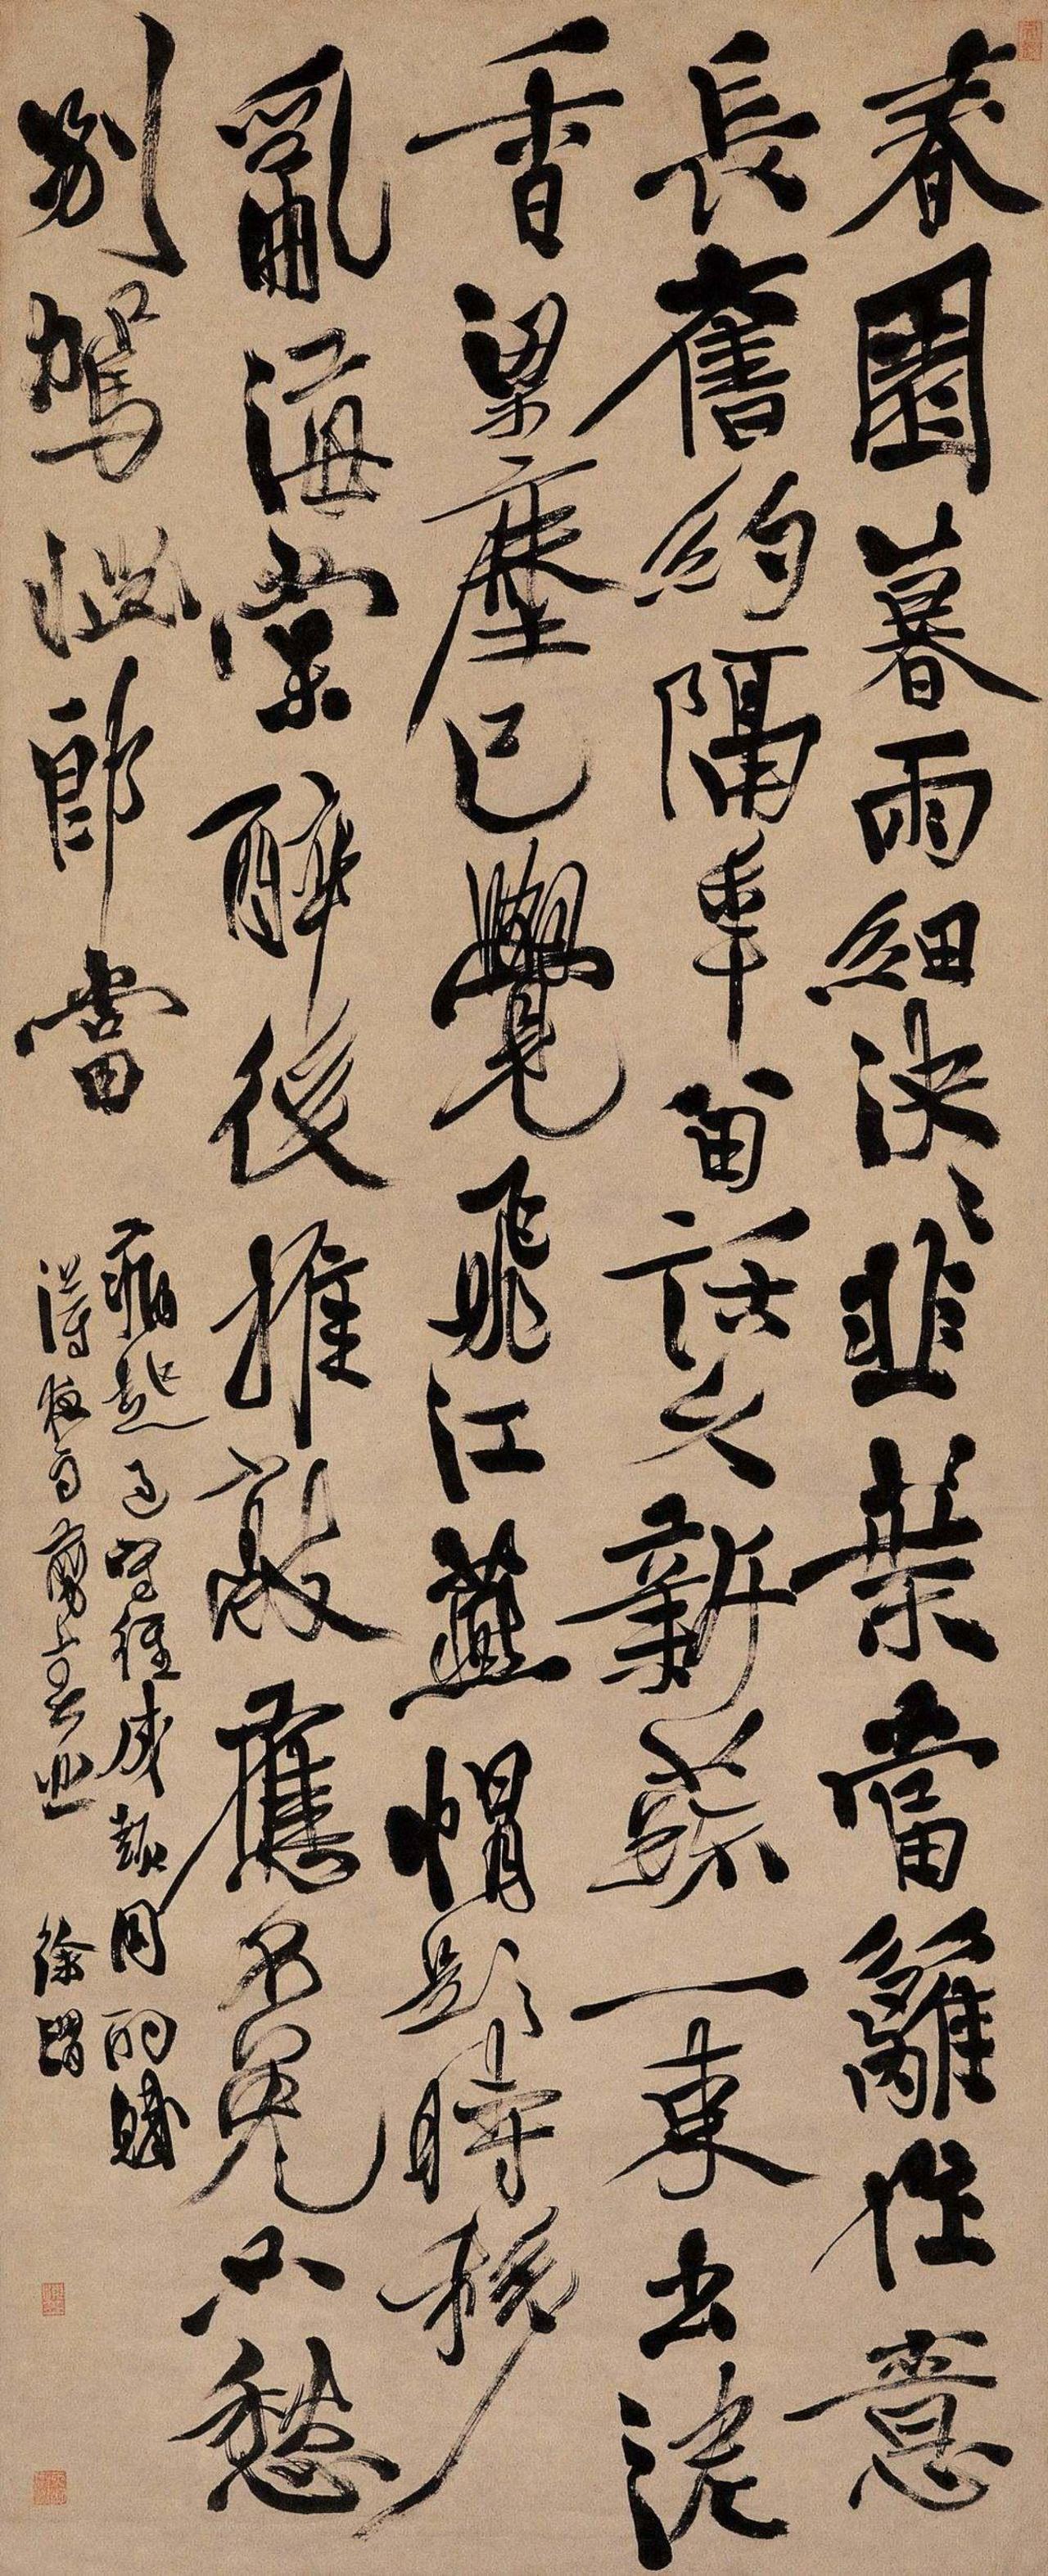 春園暮雨細泱泱韭葉當籬作意
長舊約隔年留話久新蔬一束出泥
香梁塵已覺飛江燕帽影時移
亂海棠醉後推敲應不免只愁
別駕惱郎當
病起過 同酌賦
得夜雨剪春韭 徐渭